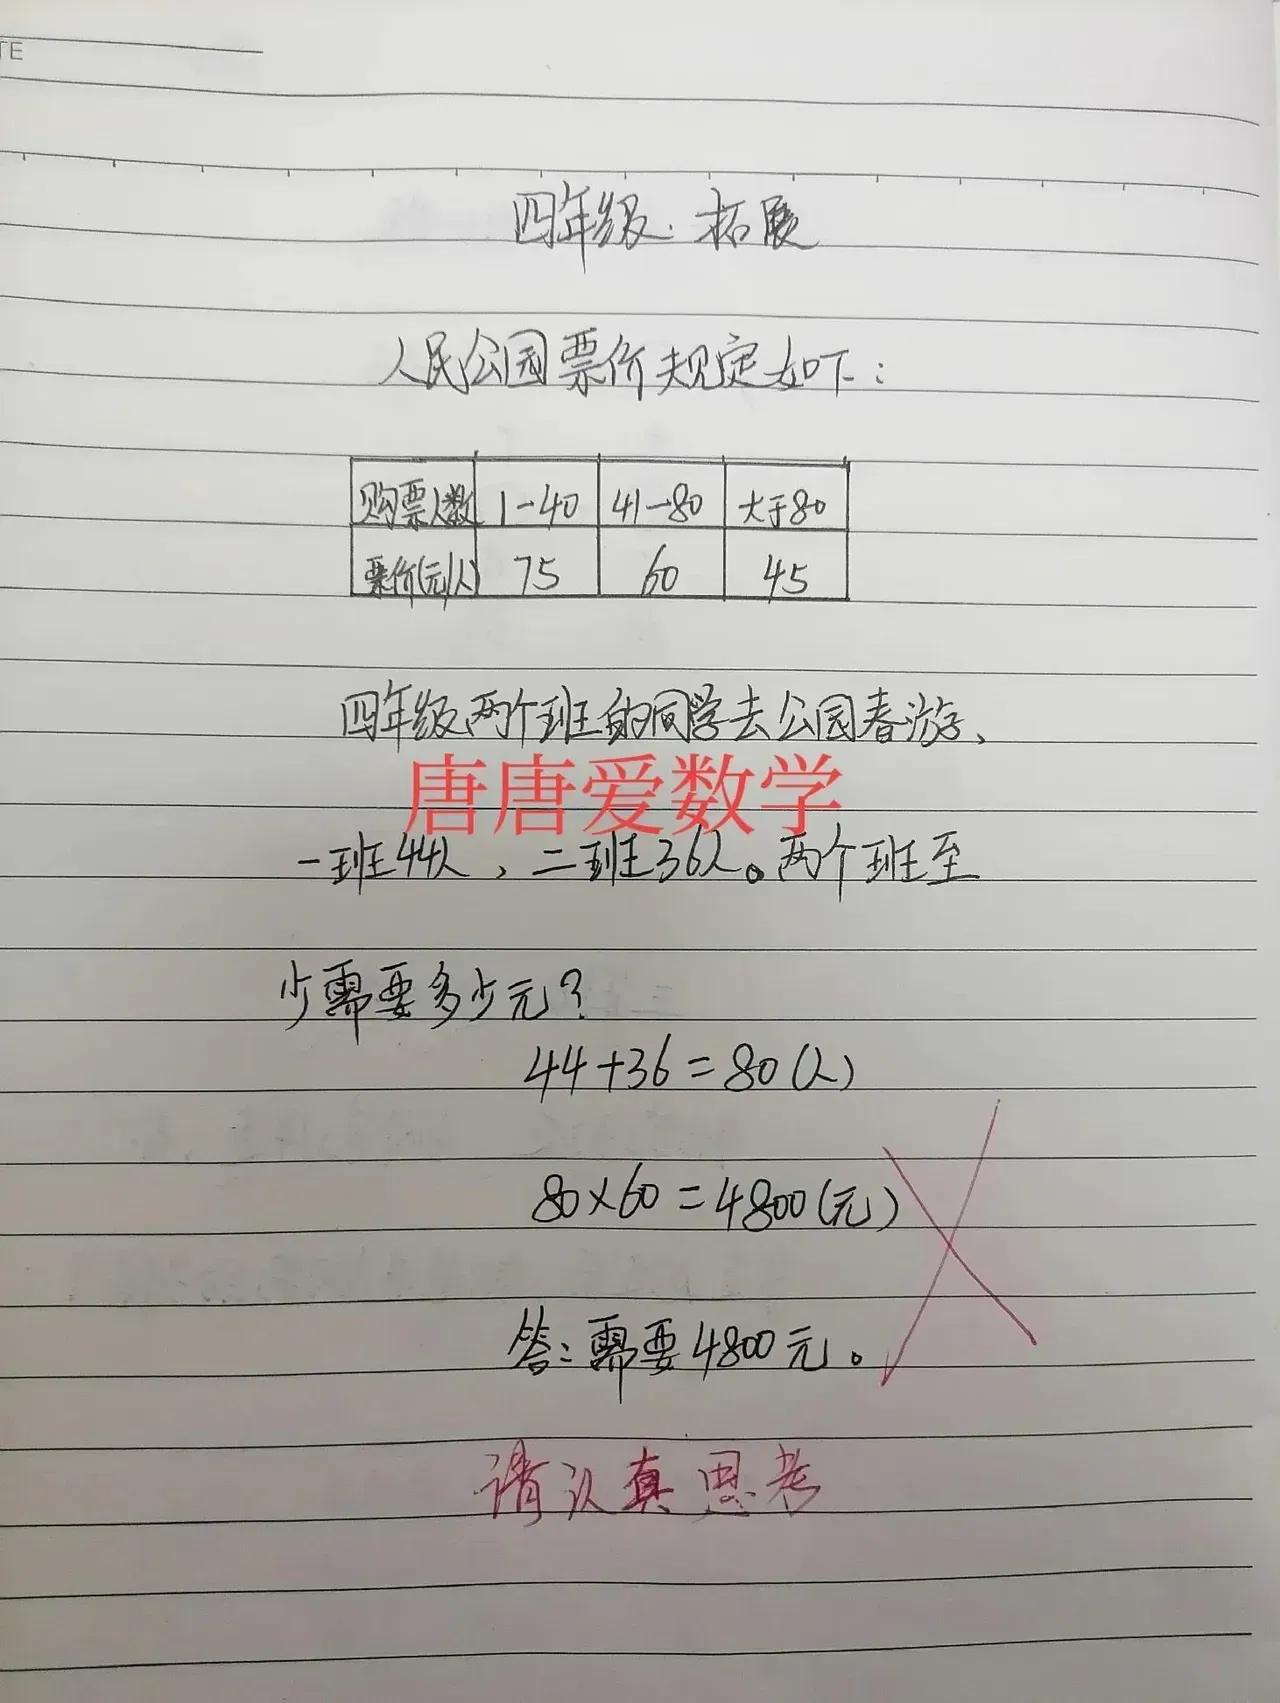 TE
四年级.拓展
人民公园票价规定如下:
购票人数 1-40 41-80 大于80
票价(元/人) 75 60 45
四年级两个班的同学去公园春游、
唐唐爱数学
一班44人,二班36人。两个班至
少需要多少元?
44+36=80(人)
80×60=4800(元)
答:需要4800元。
请认真思考